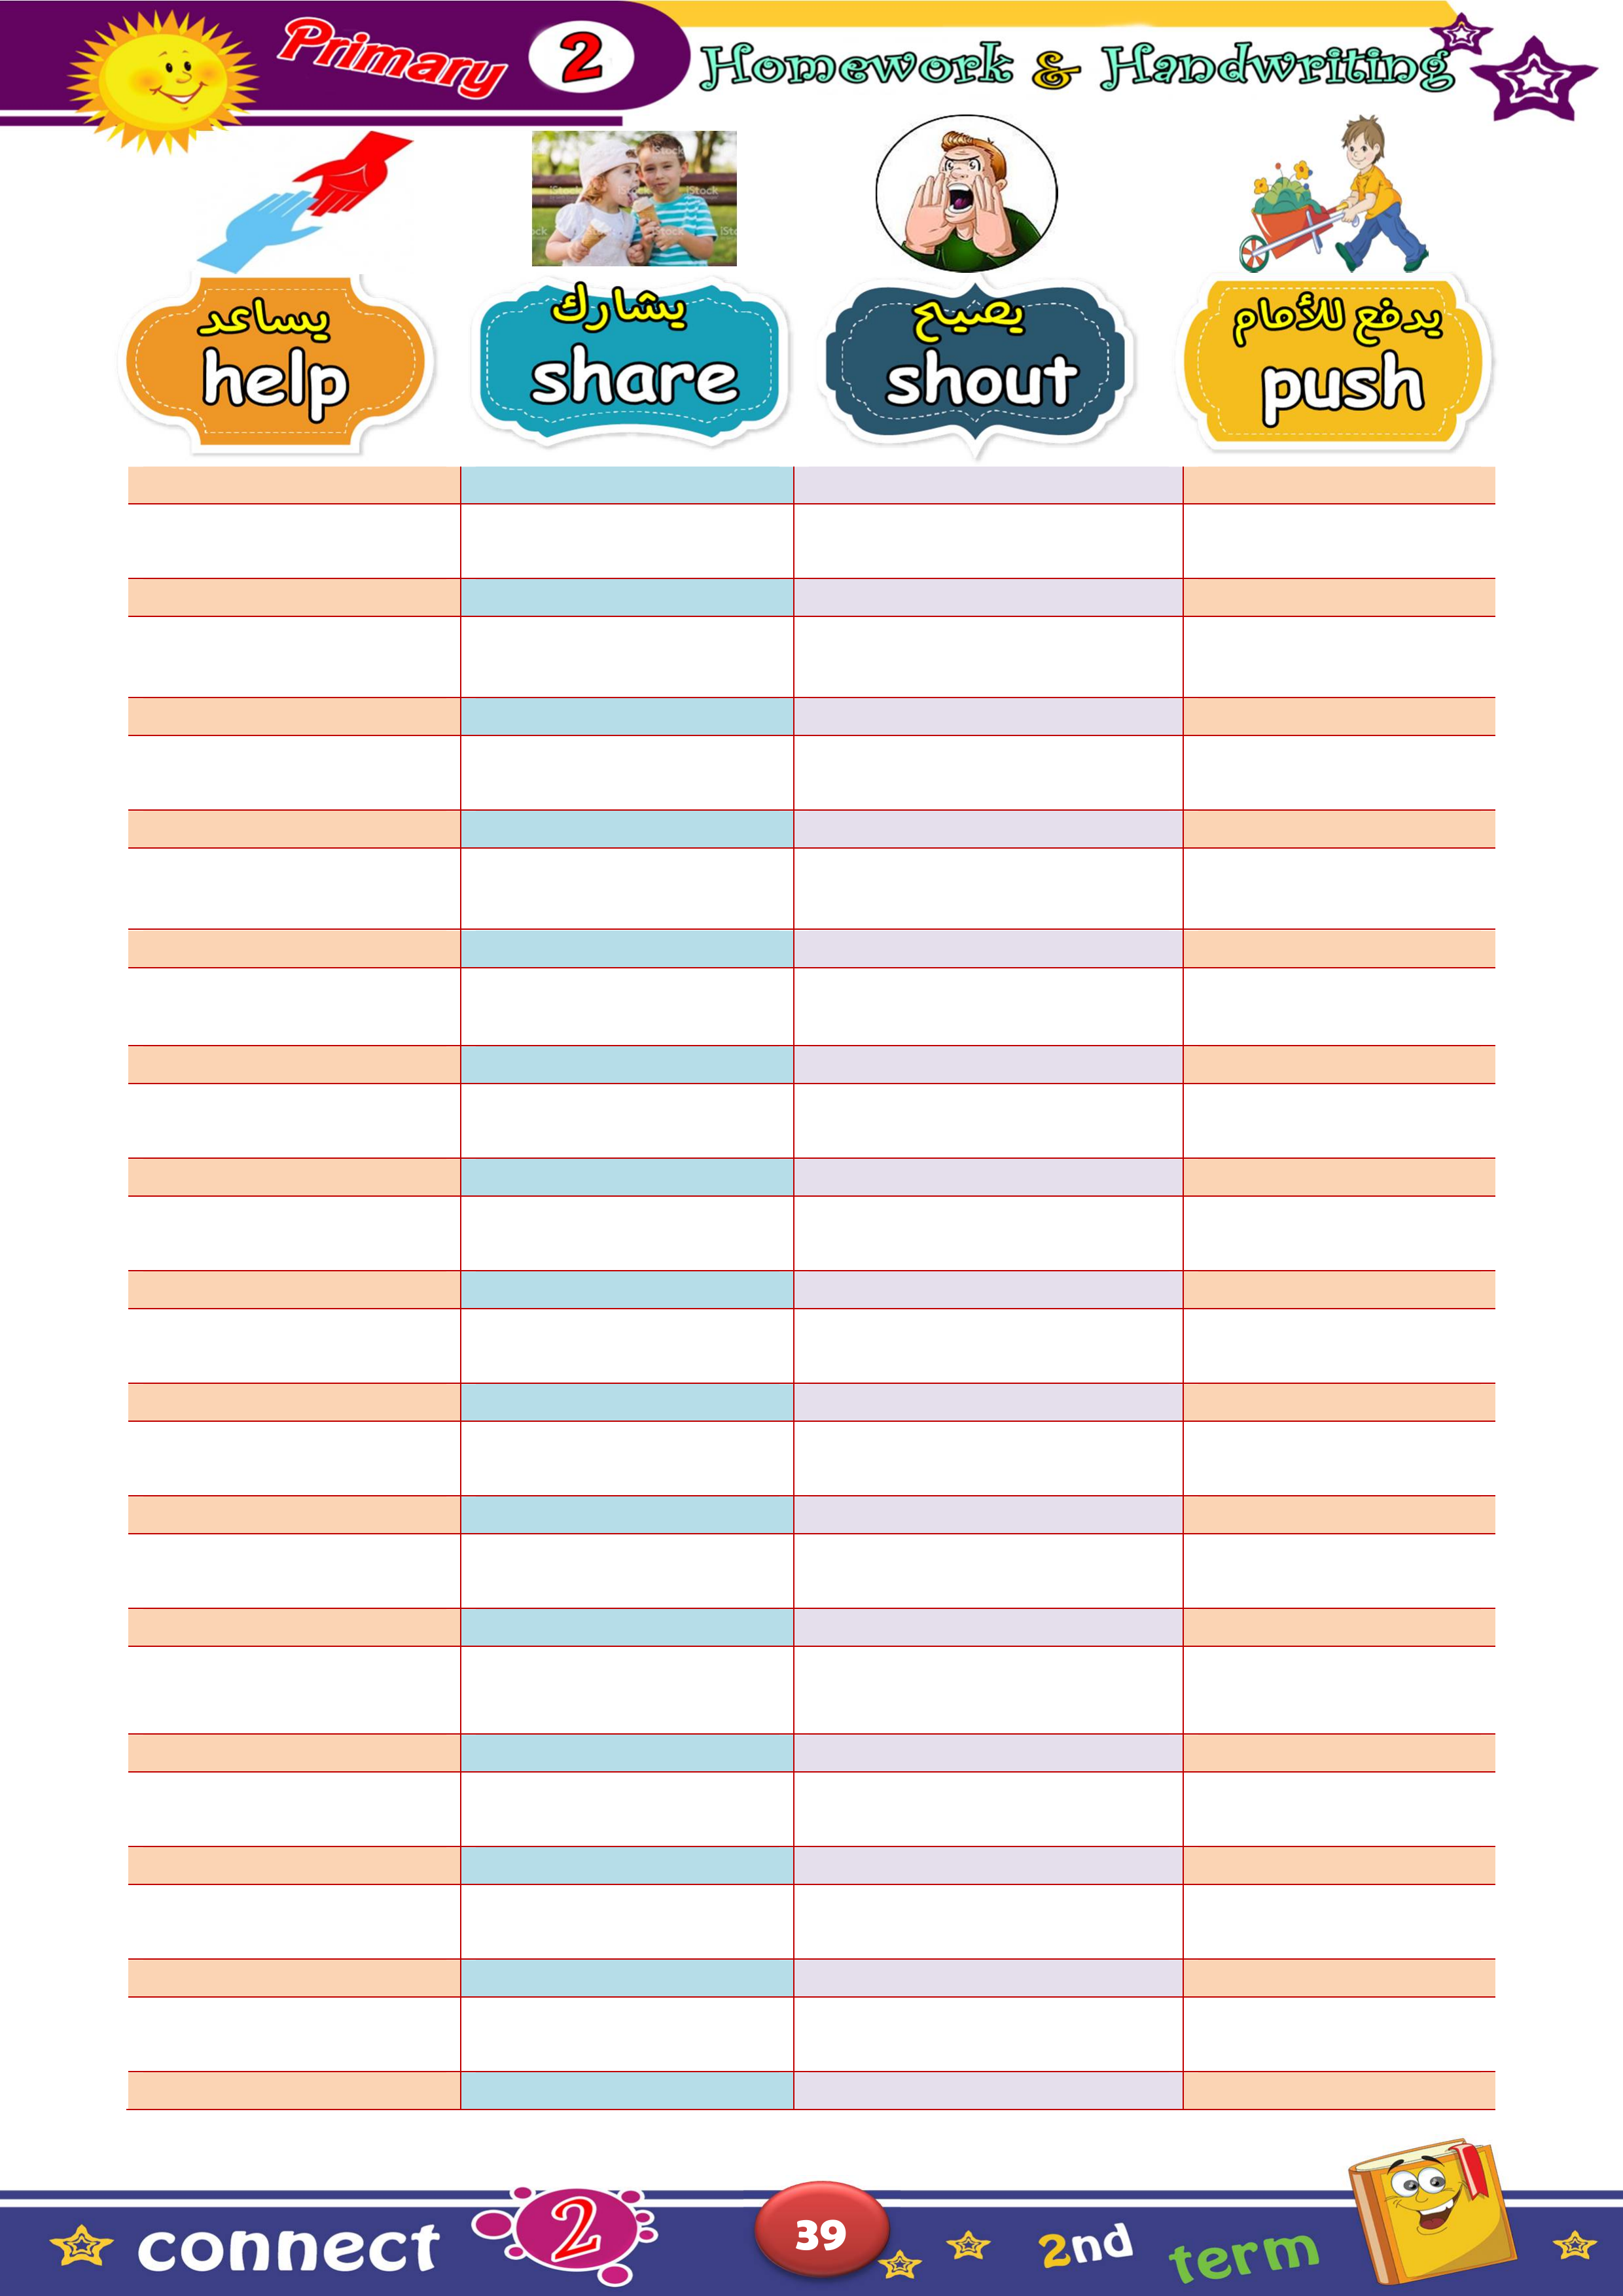 Primary 2 Homework & Handwriting
iStock iStock iStock
يساعد
help
يشارك
share
يصيح
shout
يدفع للأمام
push
connect 2 39 2nd term